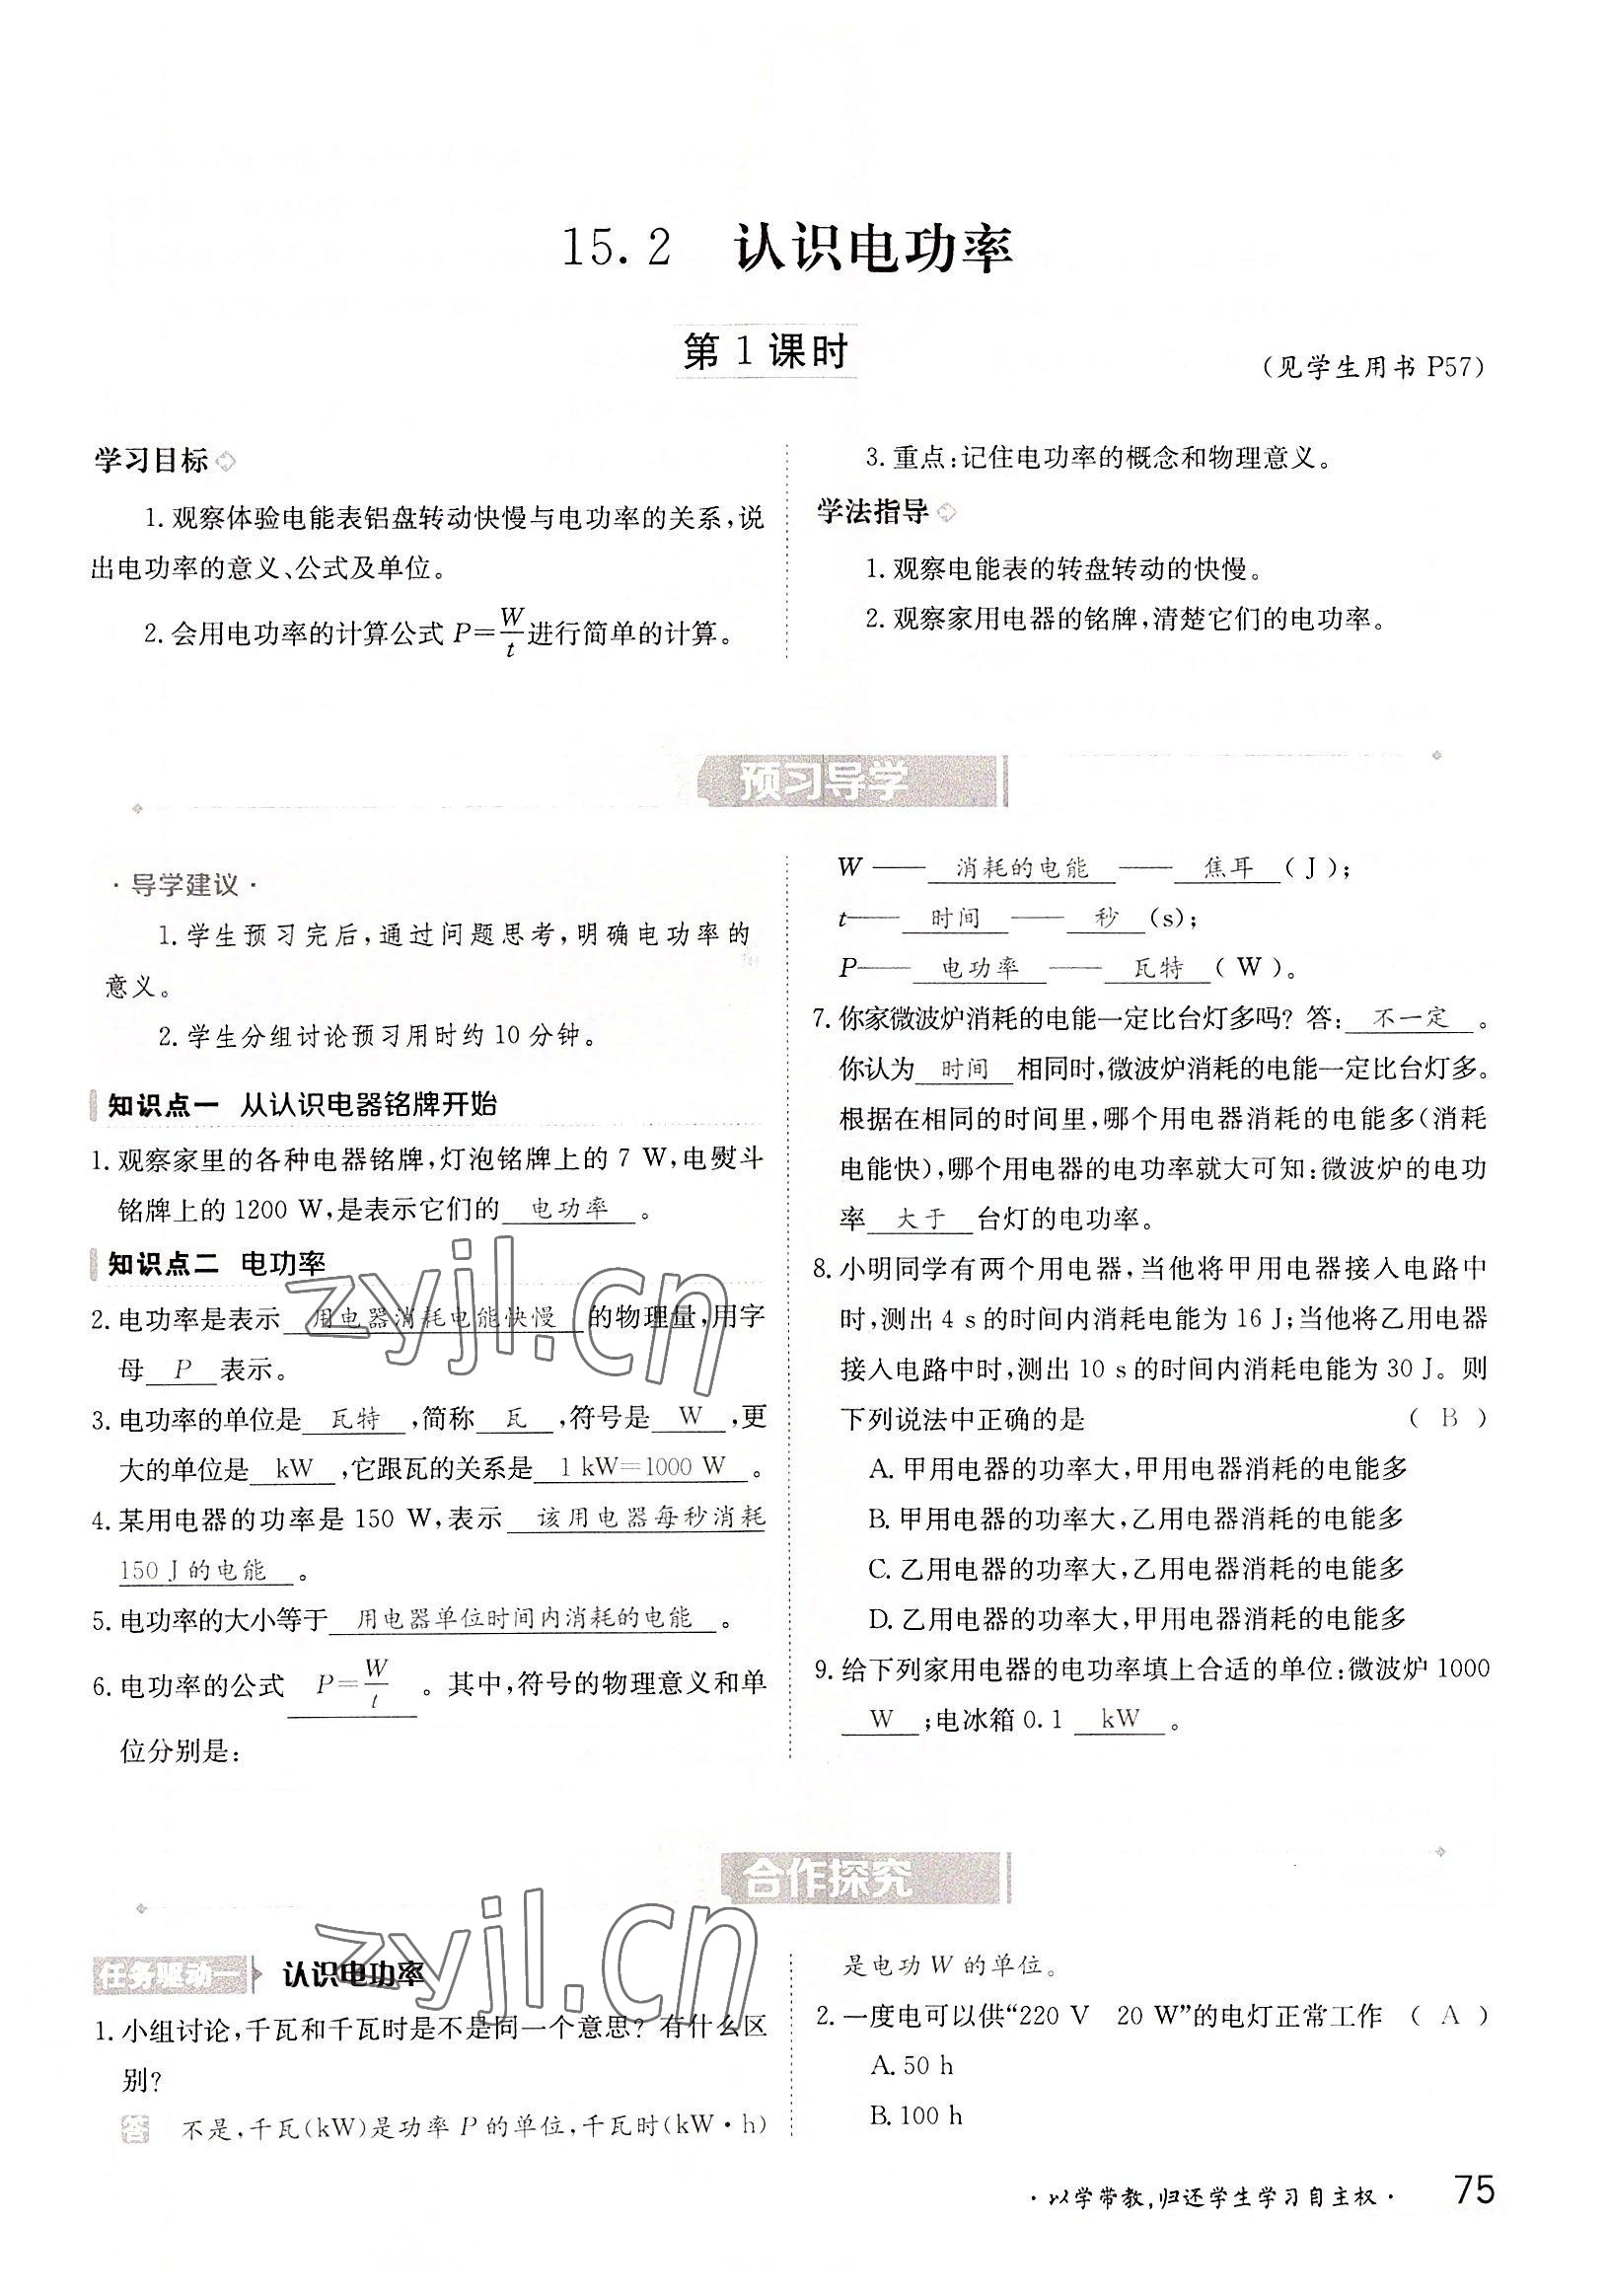 15.2 认识电功率
第1课时
(见学生用书P57)
学习目标
1.观察体验电能表铝盘转动快慢与电功率的关系,说
出电功率的意义、公式及单位。
2.会用电功率的计算公式P=W/t进行简单的计算。
3.重点:记住电功率的概念和物理意义。
学法指导
1.观察电能表的转盘转动的快慢。
2.观察家用电器的铭牌,清楚它们的电功率。
预习导学
·导学建议·
1.学生预习完后,通过问题思考,明确电功率的
意义。
2.学生分组讨论预习用时约10分钟。
知识点一 从认识电器铭牌开始
1.观察家里的各种电器铭牌,灯泡铭牌上的7 W,电熨斗
铭牌上的1200 W,是表示它们的 电功率 。
知识点二 电功率
2.电功率是表示 用电器消耗电能快慢 的物理量,用字
母 P 表示。
3.电功率的单位是 瓦特 ,简称 瓦 ,符号是 W ,更
大的单位是 kW ,它跟瓦的关系是 1 kW=1000 W 。
4.某用电器的功率是150 W,表示 该用电器每秒消耗
150 J的电能 。
5.电功率的大小等于 用电器单位时间内消耗的电能 。
6.电功率的公式 P=W/t 。其中,符号的物理意义和单
位分别是:
W —— 消耗的电能 —— 焦耳 (J);
t—— 时间 —— 秒 (s);
P—— 电功率 —— 瓦特 (W)。
7.你家微波炉消耗的电能一定比台灯多吗?答: 不一定 。
你认为 时间 相同时,微波炉消耗的电能一定比台灯多。
根据在相同的时间里,哪个用电器消耗的电能多(消耗
电能快),哪个用电器的电功率就大可知:微波炉的电功
率 大于 台灯的电功率。
8.小明同学有两个用电器,当他将甲用电器接入电路中
时,测出4 s的时间内消耗电能为16 J;当他将乙用电器
接入电路中时,测出10 s的时间内消耗电能为30 J。则
下列说法中正确的是 ( B )
A.甲用电器的功率大,甲用电器消耗的电能多
B.甲用电器的功率大,乙用电器消耗的电能多
C.乙用电器的功率大,乙用电器消耗的电能多
D.乙用电器的功率大,甲用电器消耗的电能多
9.给下列家用电器的电功率填上合适的单位:微波炉1000
W ;电冰箱0.1 kW 。
合作探究
任务驱动一 认识电功率
1.小组讨论,千瓦和千瓦时是不是同一个意思?有什么区
别?
答 不是,千瓦(kW)是功率P的单位,千瓦时(kW·h)
是电功W的单位。
2.一度电可以供“220 V 20 W”的电灯正常工作 ( A )
A.50 h
B.100 h
·以学带教,归还学生学习自主权·
75
zyjl.cn
zyjl.cn